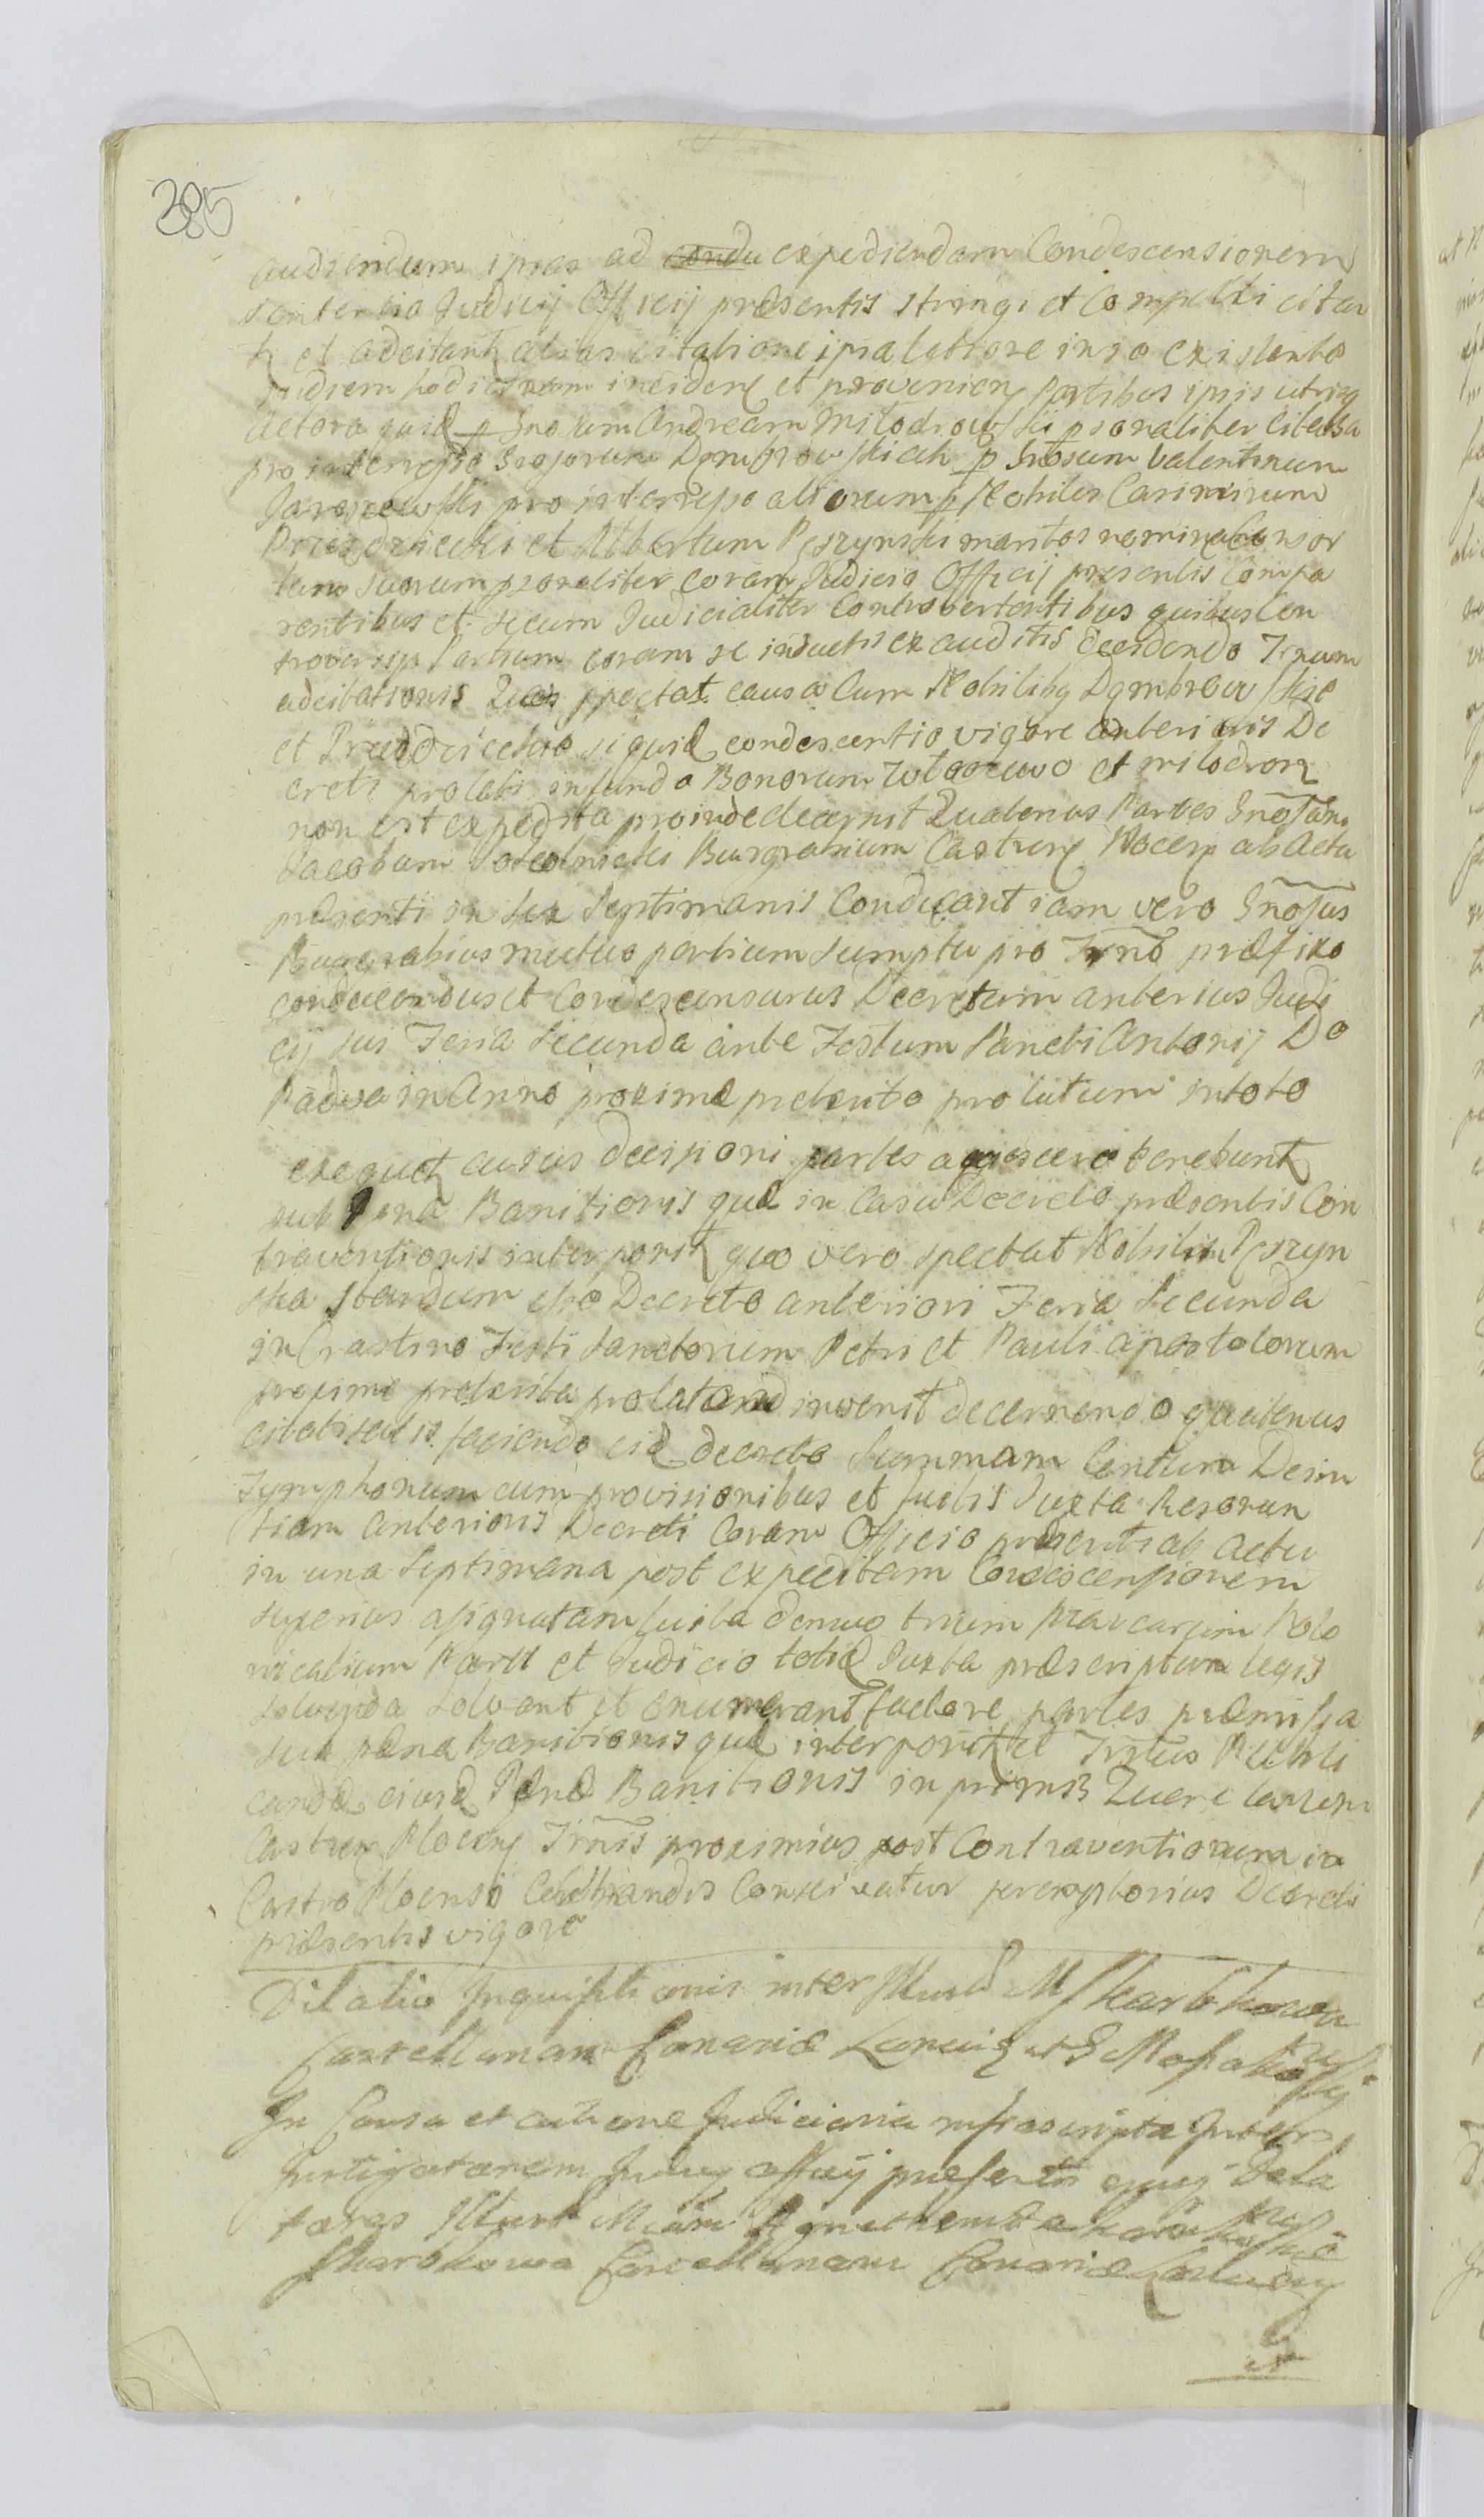 385
audiendum ipsas ad condu expediendam Condescensionem
sententia Judicij Officij præsentis stringi et Compelli citar
et adcitant alias citatione ipsa latiore in eo existente
in diem hodiernam inciden et provenien Partibus ipsis utrinq
Actorea quid p Gnosum Andream Miłodrowski psonaliter Citatsa
pro interesse Gnosorum Dembrowskich p Gnosum Valentinum
pro interesse aliorum p Nobiles Casimirum
et Albertum Pszynski maritos nomine Consor
tum suarum psonaliter coram Judicio Officij præsentis Compa
rentibus et secum Judicialiter Controvertentibus quibus Con
troversijs Partium coram se inductis ex auditis decidendo Trnum
adcitationis Quo spectat causa Cum Nobilibq Dembrowskie
et siquid condescentio vigore anterioris De
creti prolati in fundo Bonorum et Miłodroz
non est expedita proinde decernit Quatenus Partes Gnosum
Jacobum Burgrabium Castren Plocen ab Actu
præsenti in sex Septimanis Conducant iam vero Gnosus
Burgrabius mutuo partium sumptu pro Trno præfixo
conducendus et Condescensurus Decretum anterius Judi
cij sui Feria Secunda ante Festum Sancti Antonij De
Padua in Anno proxime preterito prolatum in toto
exequet cuius decisioni partes acquiescere tenebunt
sub Pena Banitionis quæ in Casu Decreto præsentis Con
traventionis interponit quo vero spectat Nobilem Pszyn
ska standum esse Decreto anteriori Feria Secunda
in Crastino Festi Sanctorum Petri et Pauli apostolorum
proxime preterita prolatand invenit decernendo quatenus
citati satis faciendo eid decreto Summam Centum Decim
Tymphonum cum provisionibus et luitis Juxta Resonan
tiam anterioris Decreti Coram Officio præsenti ab actu
in una Septimana post expeditam Condescensionem
superius assignatam luita denuo trium Marcarum Polo
nicalium Parti et Judicio totid Juxta præscriptum legis
solvenda solvant et enumerant factore partes præmissa
sub pæna Banitionis quæ interponit et Trnus Publi
candæ eiusd Pænæ Banitionis in primis Querelarum
Castren Plocen Trnis proximius post Contraventionem in
Castro Plocensi Celebrandis Conservatur peremptorius Decreti
præsentis vigore
Dilatio Inquisitionis inter Illust M Skarbkowa
Castellanam Conariæ Lancic et G
In Causa et actione Judiciaria infrascripta Inter
Instigatorem Judicij officij præsentis ejusq Dela
tores Illust M
Skarbkowa Castellanam Conariæ
et